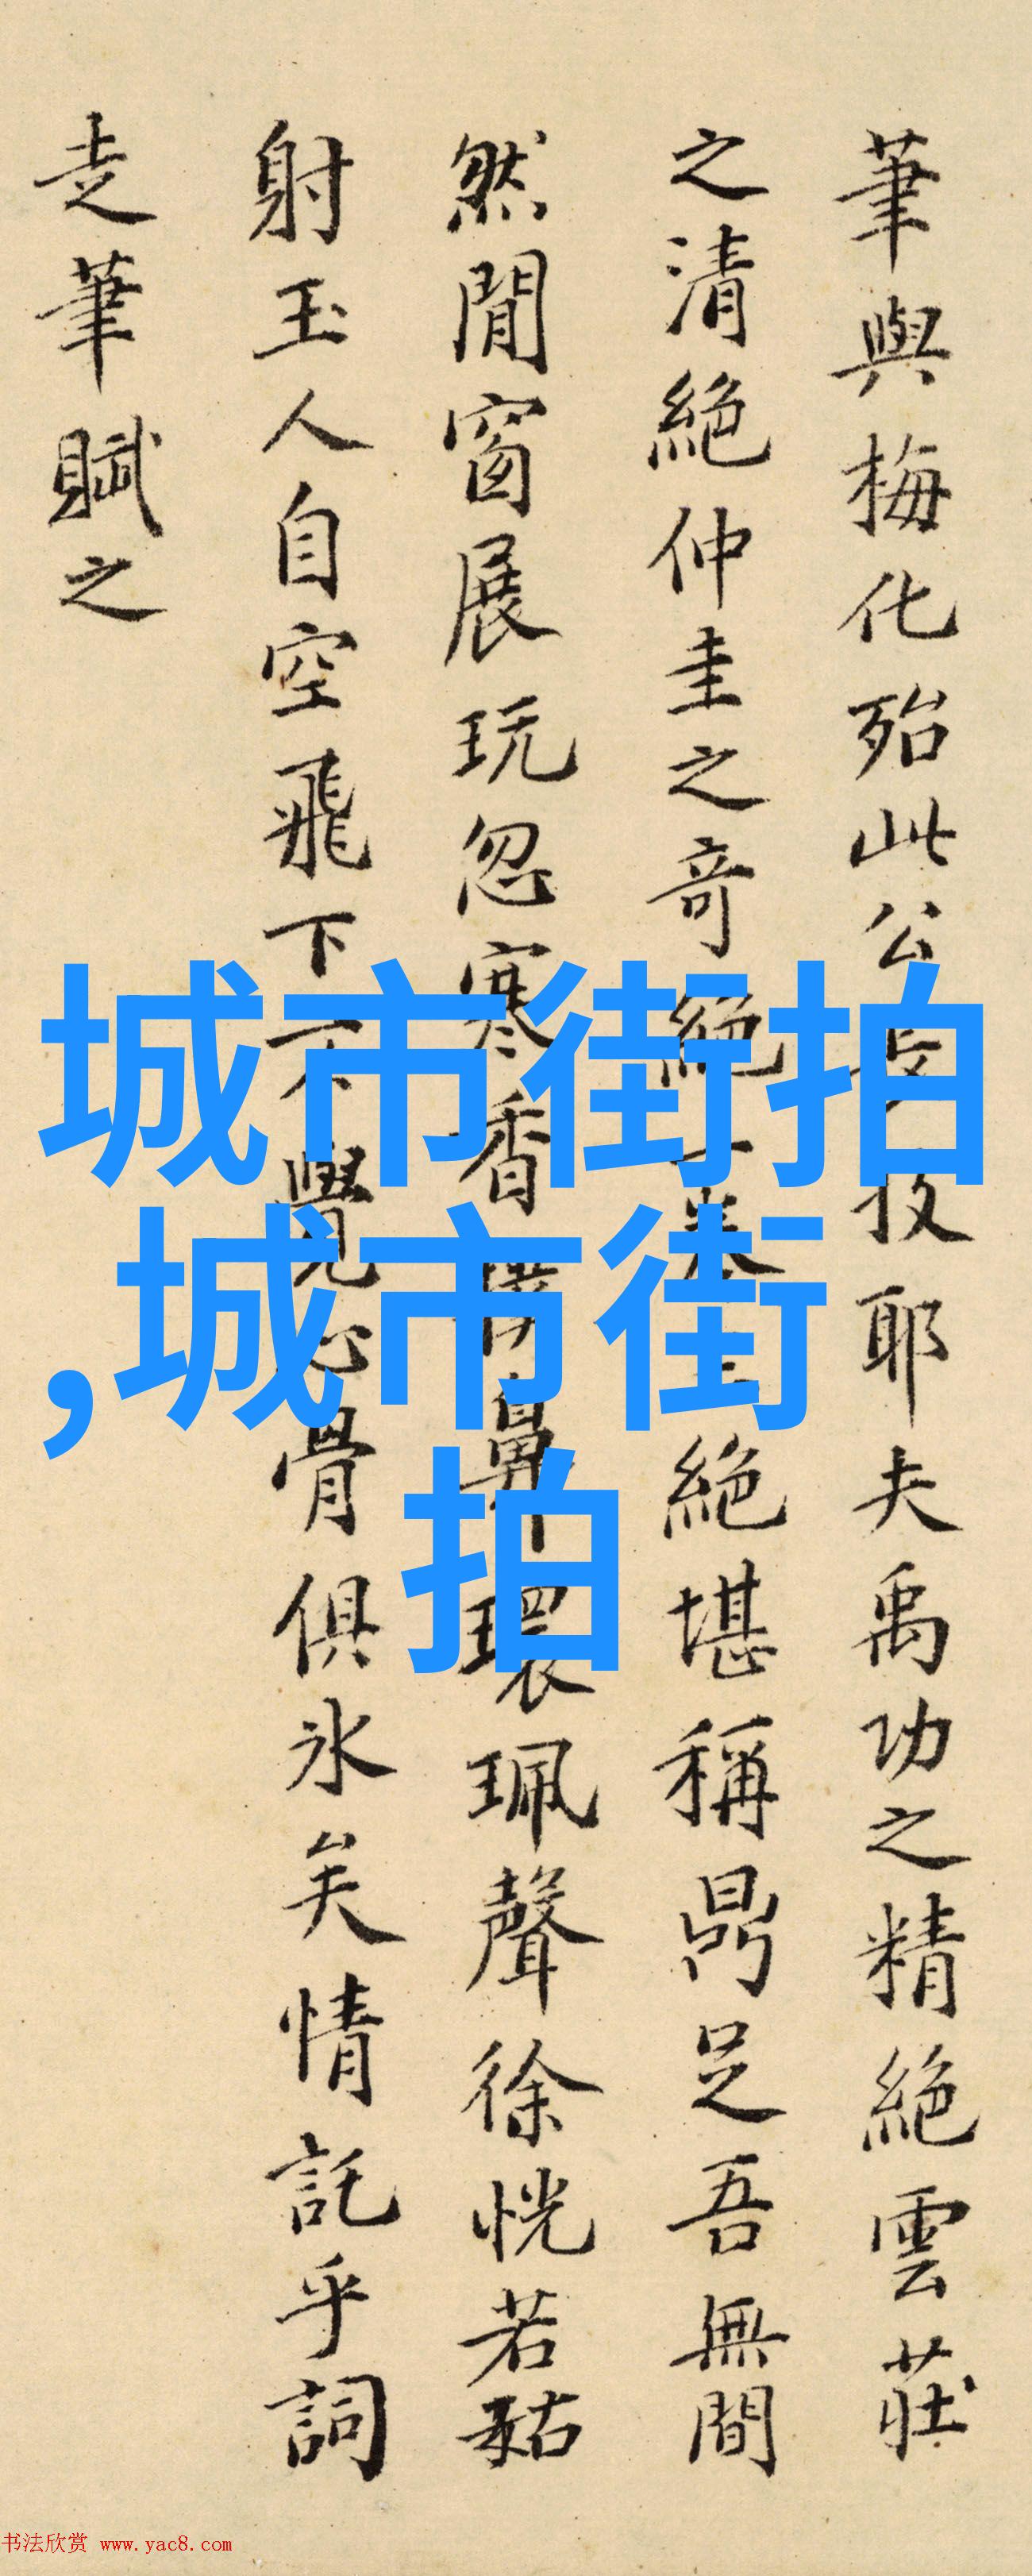 筆與梅化殆此公長技耶夫禹功之精絕雲莊
之清絕仲圭之奇絕一卷三絕堪稱鼎足吾無間
然閒窗展玩忽寒香撲鼻環珮聲徐恍若菇
射玉人自空飛下不覺心骨俱冰矣情託乎詞
走筆賦之
城市街拍
,城市街
拍
书法欣赏 www.yac8.com